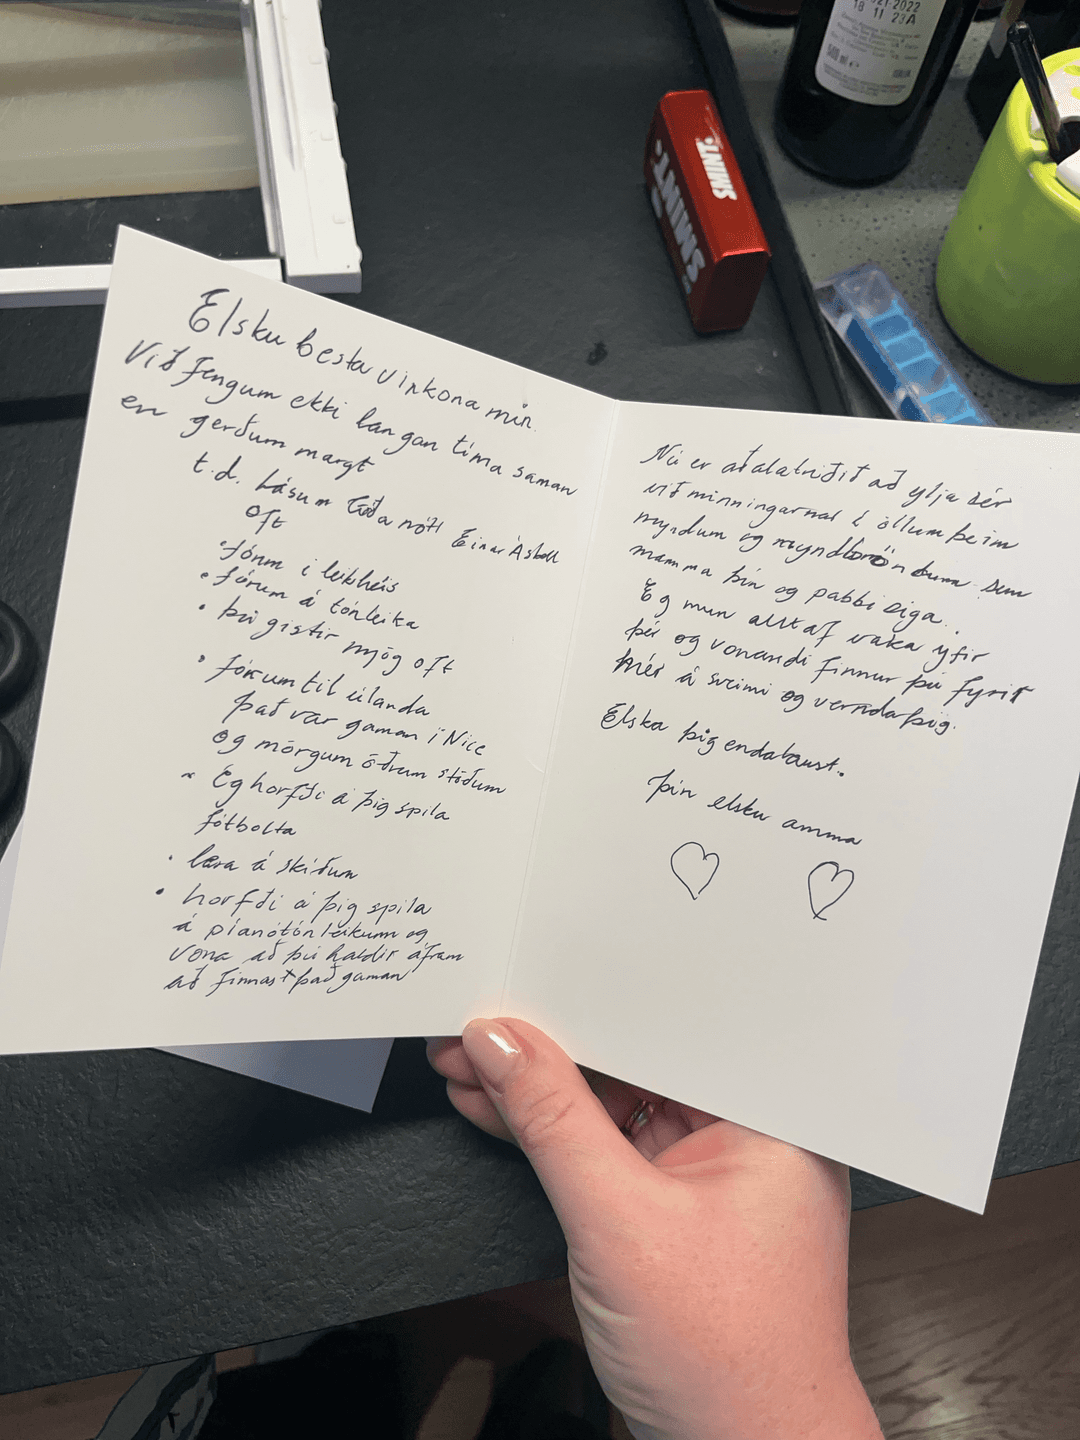 021-2022
18 11 23A
500 ml e
SMINT.
SMINT.
Elsku besta vinkona mín.
Við fengum ekki langan tíma saman
en gerðum margt
t.d. Lásum Góða nótt Einar Áskell
oft
• fórum í leikhús
• fórum á tónleika
• þú gistir mjög oft
• fórum til útlanda
það var gaman í Nice
og mörgum öðrum stöðum
• Ég horfði á þig spila
fótbolta
• læra á skíðum
• horfði á þig spila
á píanótónleikum og
vona að þú haldir áfram
að finnast það gaman
Nú er aðalatriðið að ylja sér
við minningarnar í öllum þeim
myndum og myndböndum sem
mamma þín og pabbi eiga.
Ég mun alltaf vaka yfir
þér og vonandi finnur þú fyrir
mér á sveimi og vernda þig.
Elska þig endalaust.
Þín elsku amma